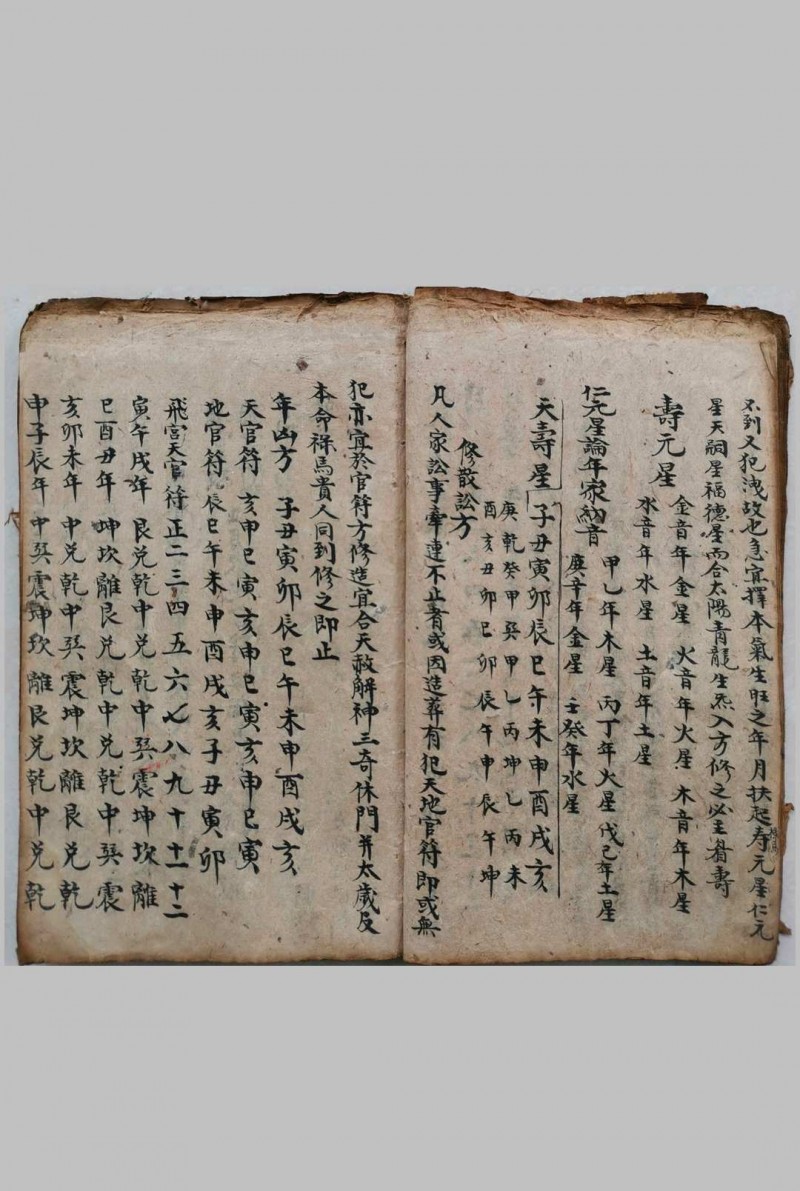 不到又犯洩故也急宜擇本氣生旺之年月扶起寿元星仁元
星天嗣星福德星而合太陽青龍生炁入方修之必主眉壽
壽元星
金音年金星 火音年火星 木音年木星
水音年水星 土音年土星
仁元星論年家納音
甲乙年木星 丙丁年火星 戊己年土星
庚辛年金星 壬癸年水星
天壽星 子丑寅卯辰巳午未申酉戌亥
庚乾癸甲癸甲乙丙坤乙丙未
酉亥丑卯巳卯辰午申辰午坤
修散訟方
凡人家訟事牽連不止者或因造葬有犯天地官符即或無
犯亦宜於官符方修造宜合天赦解神三奇休門并太歲及
本命祿馬貴人同到修之即止
年凶方 子丑寅卯辰巳午未申酉戌亥
天官符 亥申巳寅亥申巳寅亥申巳寅
地官符 辰巳午未申酉戌亥子丑寅卯
飛宮天官符 正二三四五六七八九十十一十二
寅午戌年 艮兑乾中兑乾中巽震坤坎離
巳酉丑年 坤坎離艮兑乾中兑乾中巽震
亥卯未年 中兑乾中巽震坤坎離艮兑乾
申子辰年 中巽震坤坎離艮兑乾中兑乾